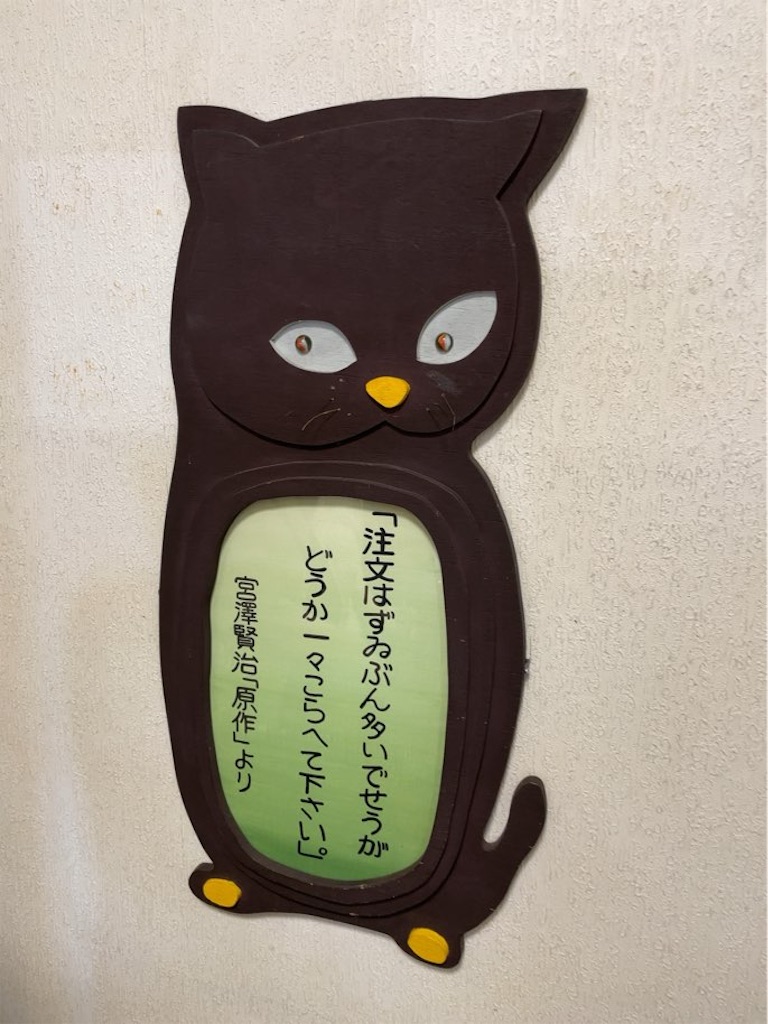 「注文はずゐぶん多いでせうが
どうか一々こらへて下さい。」
宮澤賢治「原作」より